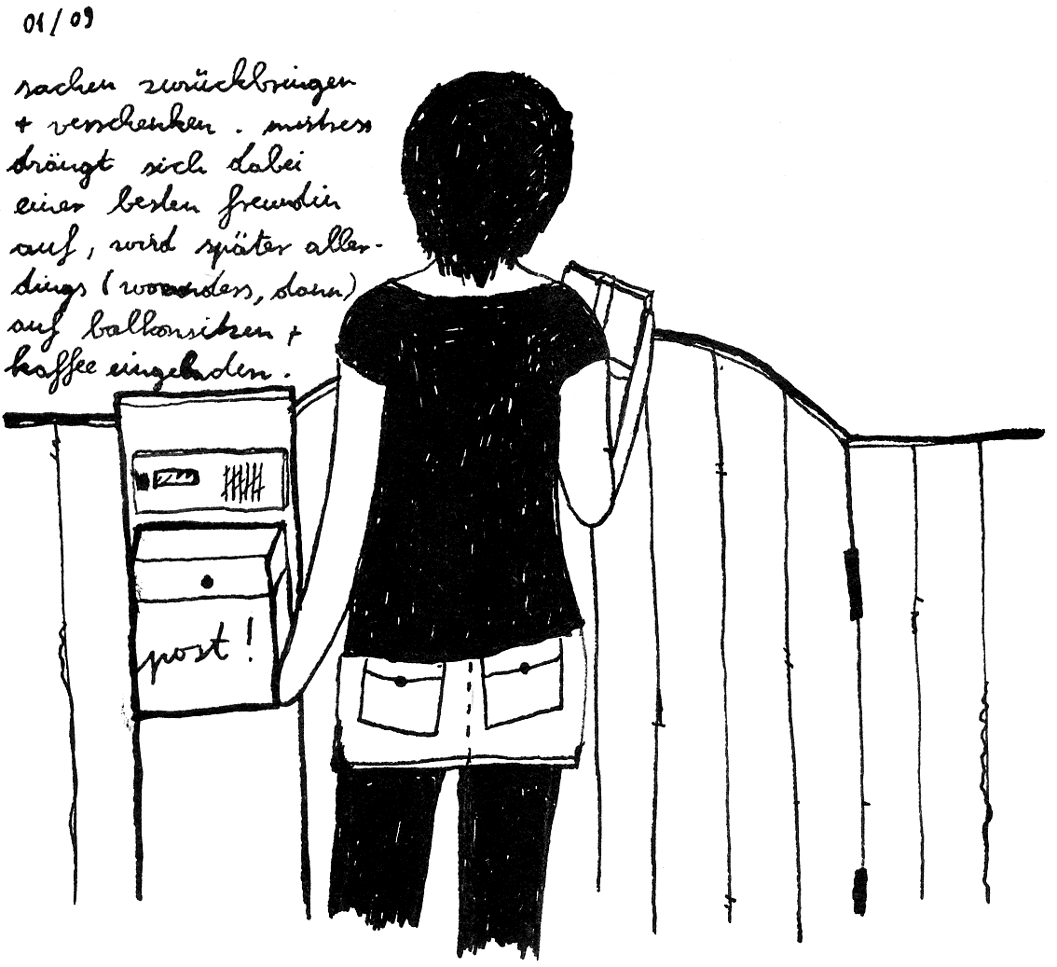 01/09
sachen zurückbringen
+ verschenken. mistress
drängt sich dabei
einer besten freundin
auf, wird später aller-
dings (woanders, dann)
auf balkonsitzen +
kaffee eingeladen.
post!